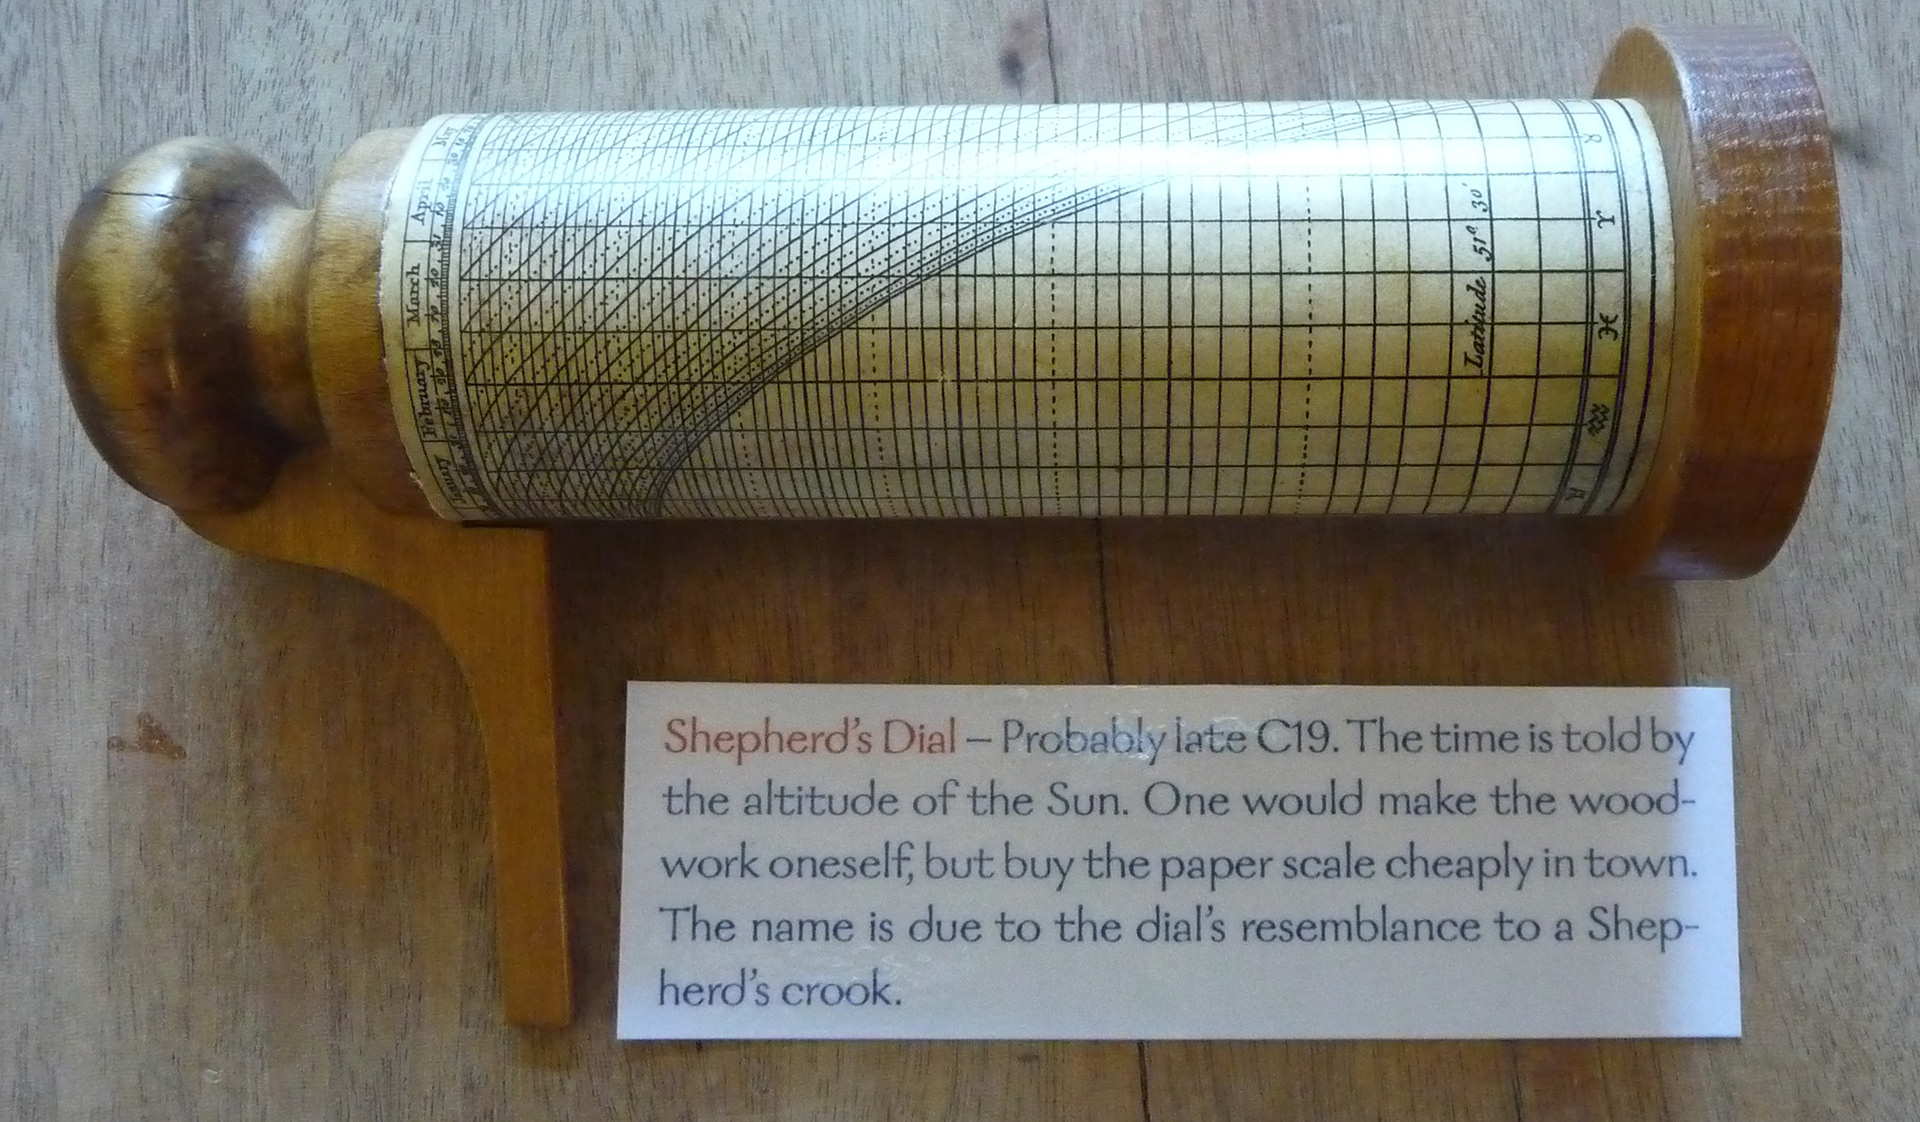 May
April
March
February
Latitude 51° 30'
♉
♈
♓
♒
Shepherd's Dial – Probably late C19. The time is told by
the altitude of the Sun. One would make the wood-
work oneself, but buy the paper scale cheaply in town.
The name is due to the dial's resemblance to a Shep-
herd's crook.